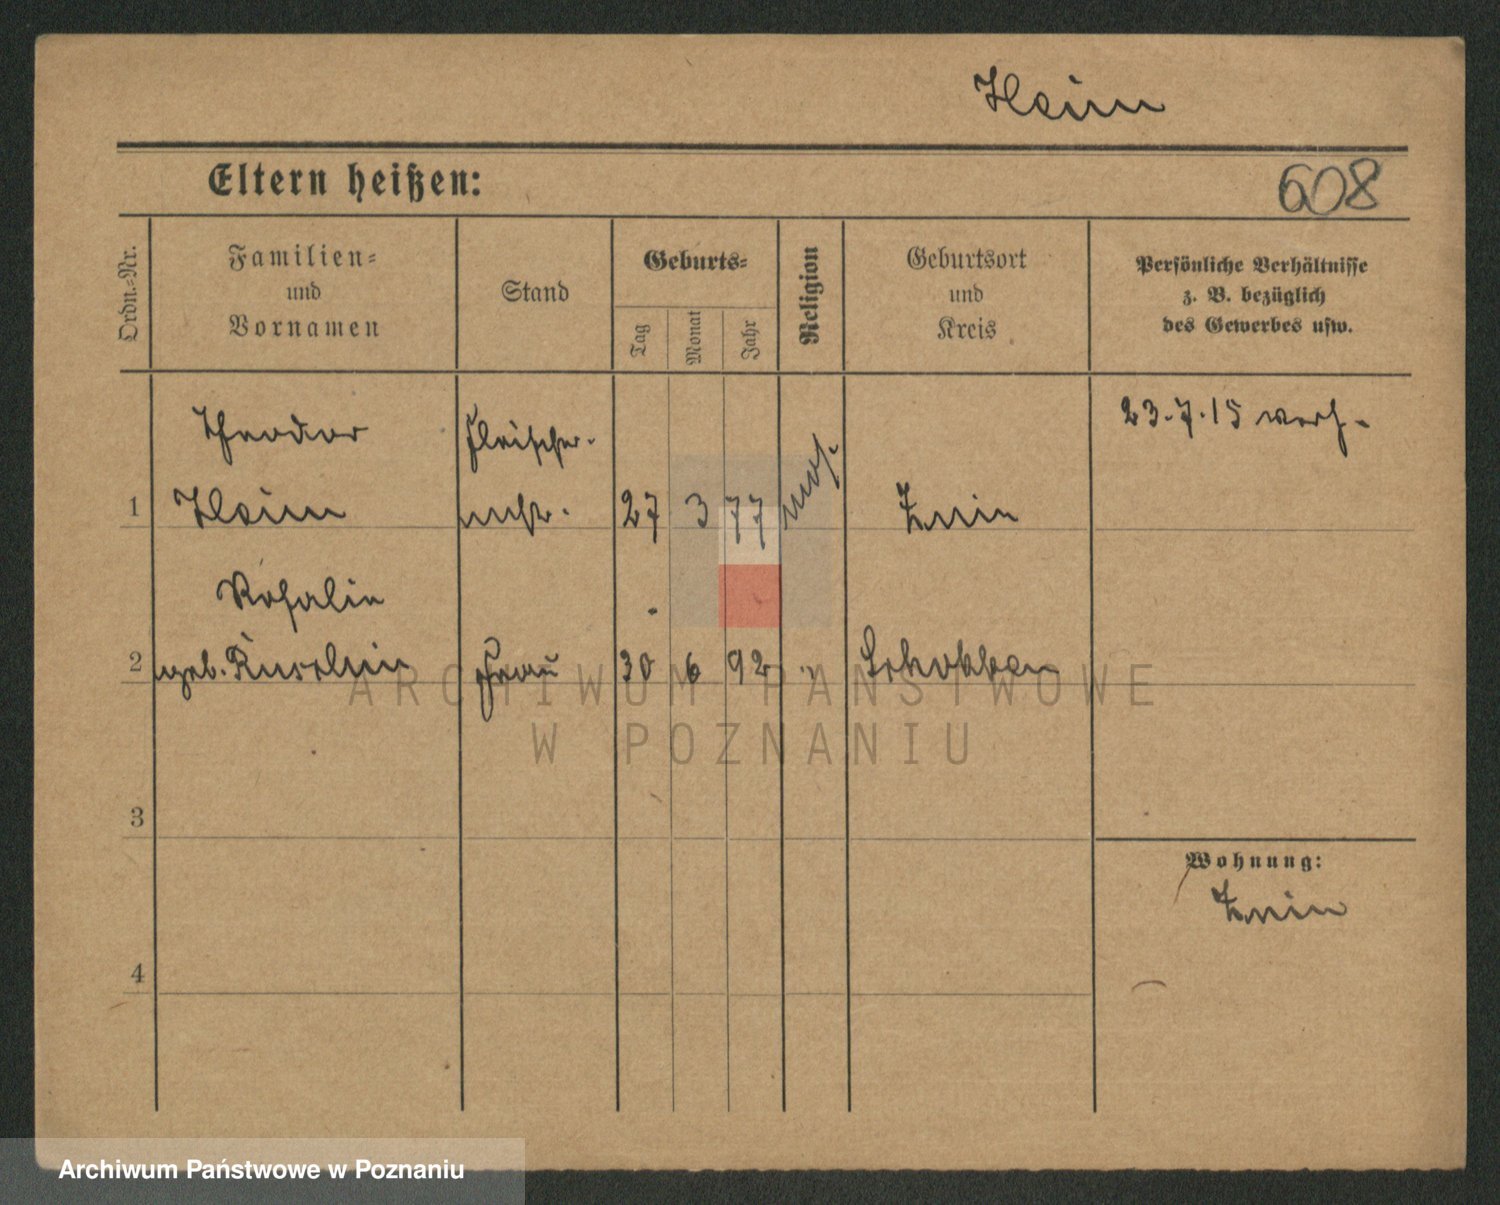 Heim
Eltern heißen:
608
Ordn.-Nr.
Familien-
und
Vornamen
Stand
Geburts-
Tag
Monat
Jahr
Religion
Geburtsort
und
Kreis
Persönliche Verhältnisse
z. B. bezüglich
des Gewerbes usw.
Theodor
Fleischer-
23.7.15 verh.
1
Heim
mstr.
27
3
77
mos.
Znin
Rosalie
2
geb.
Frau
30
6
92
"
Schokken
3
4
Wohnung:
Znin
ARCHIWUM PAŃSTWOWE
W POZNANIU
Archiwum Państwowe w Poznaniu